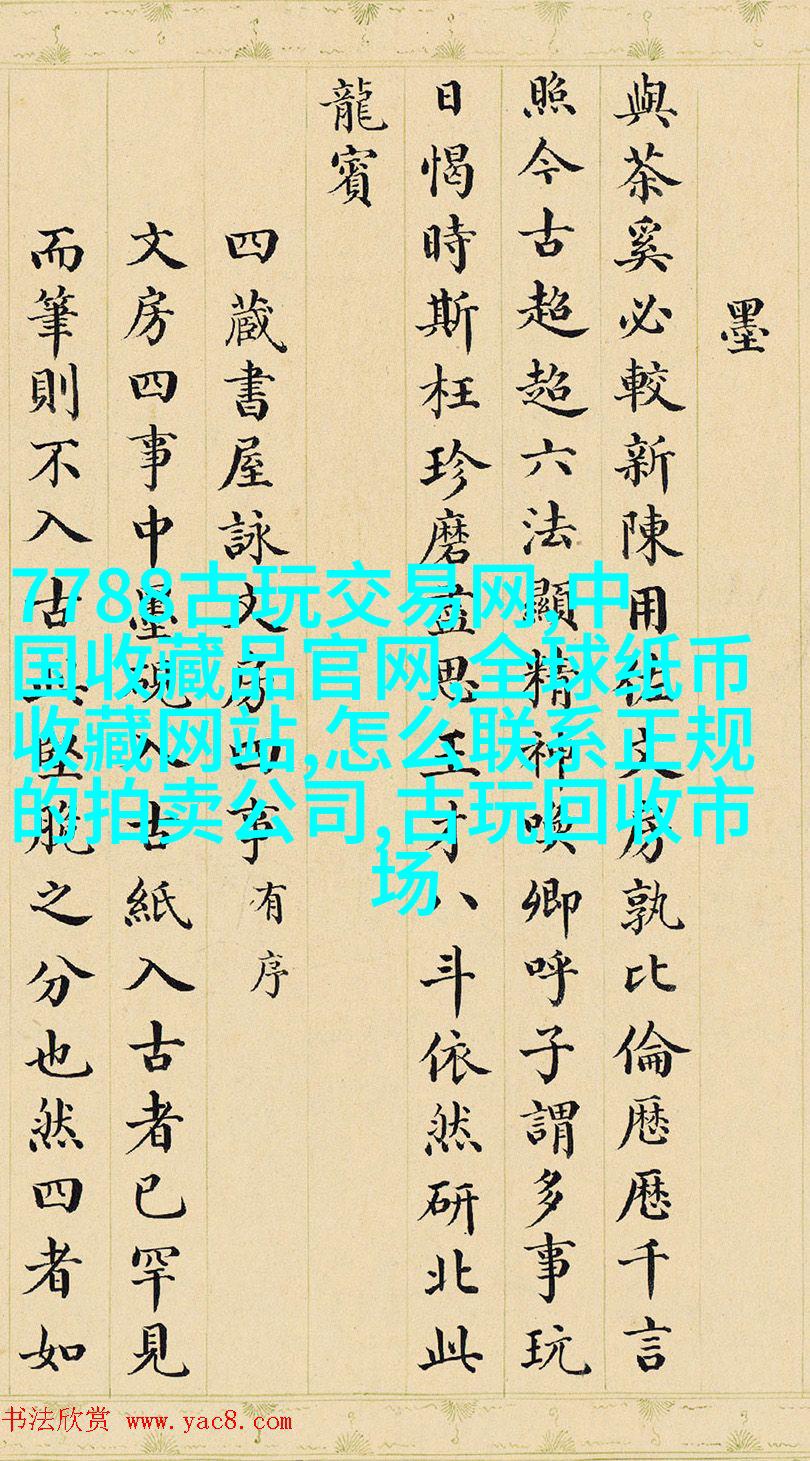 墨
與茶奚必較新陳用佐文房孰比倫歷歷千言
照今古超超六法顯精神喚卿呼子謂多事玩
日愒時斯枉珍磨思王才八斗依然研北此
龍賓
四蔵書屋詠文房四事有序
文房四事中墨硯入古紙入古者已罕見
而筆則不入古其堅脆之分也然四者如
7788古玩交易网,中
国收藏品官网,全球纸币
收藏网站,怎么联系正规
的拍卖公司,古玩回收市
场
书法欣赏 www.yac8.com